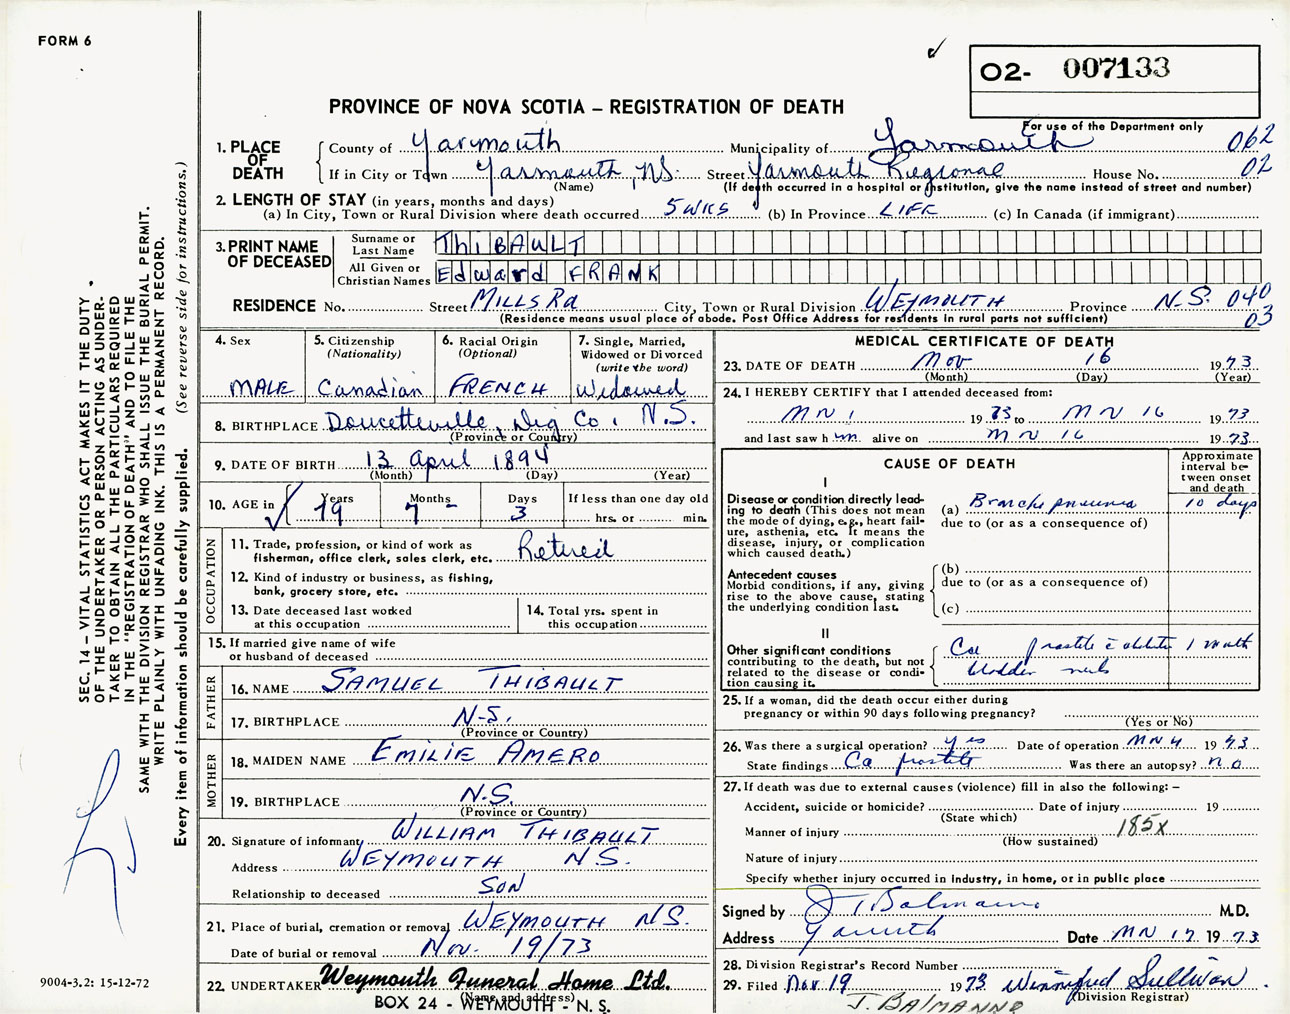 FORM 6
02- 007133
PROVINCE OF NOVA SCOTIA – REGISTRATION OF DEATH
For use of the Department only
1. PLACE OF DEATH
County of Yarmouth Municipality of Yarmouth 062
If in City or Town Yarmouth, NS. Street Yarmouth Regional House No. 02
(Name) (If death occurred in a hospital or institution, give the name instead of street and number)
2. LENGTH OF STAY (in years, months and days)
(a) In City, Town or Rural Division where death occurred 5 WKS (b) In Province LIFE (c) In Canada (if immigrant)
3. PRINT NAME OF DECEASED
Surname or Last Name ThiBAULT
All Given or Christian Names Edward FRANK
RESIDENCE No. Street MILLS Rd City, Town or Rural Division WEYMOUTH Province N.S. 040
(Residence means usual place of abode. Post Office Address for residents in rural parts not sufficient) 03
4. Sex MALE
5. Citizenship (Nationality) Canadian
6. Racial Origin (Optional) FRENCH
7. Single, Married, Widowed or Divorced (write the word) Widowed
8. BIRTHPLACE Doucetteville, Dig Co. N.S.
(Province or Country)
9. DATE OF BIRTH 13 April 1894
(Month) (Day) (Year)
10. AGE in Years 79 Months 7 Days 3 If less than one day old hrs. or min.
OCCUPATION
11. Trade, profession, or kind of work as fisherman, office clerk, sales clerk, etc. Retired
12. Kind of industry or business, as fishing, bank, grocery store, etc.
13. Date deceased last worked at this occupation
14. Total yrs. spent in this occupation
15. If married give name of wife or husband of deceased
FATHER
16. NAME SAMUEL THIBAULT
17. BIRTHPLACE N-S.
(Province or Country)
MOTHER
18. MAIDEN NAME EMILIE AMERO
19. BIRTHPLACE N.S.
(Province or Country)
20. Signature of informant WILLIAM THIBAULT
Address WEYMOUTH N.S.
Relationship to deceased SON
21. Place of burial, cremation or removal WEYMOUTH NS.
Date of burial or removal Nov. 19/73
22. UNDERTAKER Weymouth Funeral Home Ltd.
(Name and address)
BOX 24 - WEYMOUTH - N. S.
MEDICAL CERTIFICATE OF DEATH
23. DATE OF DEATH Nov 16 1973
(Month) (Day) (Year)
24. I HEREBY CERTIFY that I attended deceased from:
1973 to 16 1973
and last saw him alive on 16 1973
CAUSE OF DEATH
Approximate interval between onset and death
I
Disease or condition directly leading to death (This does not mean the mode of dying, e.g., heart failure, asthenia, etc. It means the disease, injury, or complication which caused death.)
(a) Bronchopneumonia 10 days
due to (or as a consequence of)
Antecedent causes
Morbid conditions, if any, giving rise to the above cause, stating the underlying condition last.
(b)
due to (or as a consequence of)
(c)
II
Other significant conditions contributing to the death, but not related to the disease or condition causing it.
Ca prostate 1 month
bladder
25. If a woman, did the death occur either during pregnancy or within 90 days following pregnancy?
(Yes or No)
26. Was there a surgical operation? yes Date of operation 1973
State findings Ca prostate Was there an autopsy? no
27. If death was due to external causes (violence) fill in also the following: –
Accident, suicide or homicide? Date of injury 19
(State which)
Manner of injury 185x
(How sustained)
Nature of injury
Specify whether injury occurred in industry, in home, or in public place
Signed by J Balmanno M.D.
Address Yarmouth Date 17 1973
28. Division Registrar's Record Number
29. Filed Nov 19 1973 Winnifred Sullivan
(Division Registrar)
J. BALMANNO
SEC. 14 – VITAL STATISTICS ACT MAKES IT THE DUTY
OF THE UNDERTAKER OR PERSON ACTING AS UNDER-
TAKER TO OBTAIN ALL THE PARTICULARS REQUIRED
IN THE "REGISTRATION OF DEATH" AND TO FILE THE
SAME WITH THE DIVISION REGISTRAR WHO SHALL ISSUE THE BURIAL PERMIT.
WRITE PLAINLY WITH UNFADING INK. THIS IS A PERMANENT RECORD.
Every item of information should be carefully supplied. (See reverse side for instructions.)
9004-3.2: 15-12-72